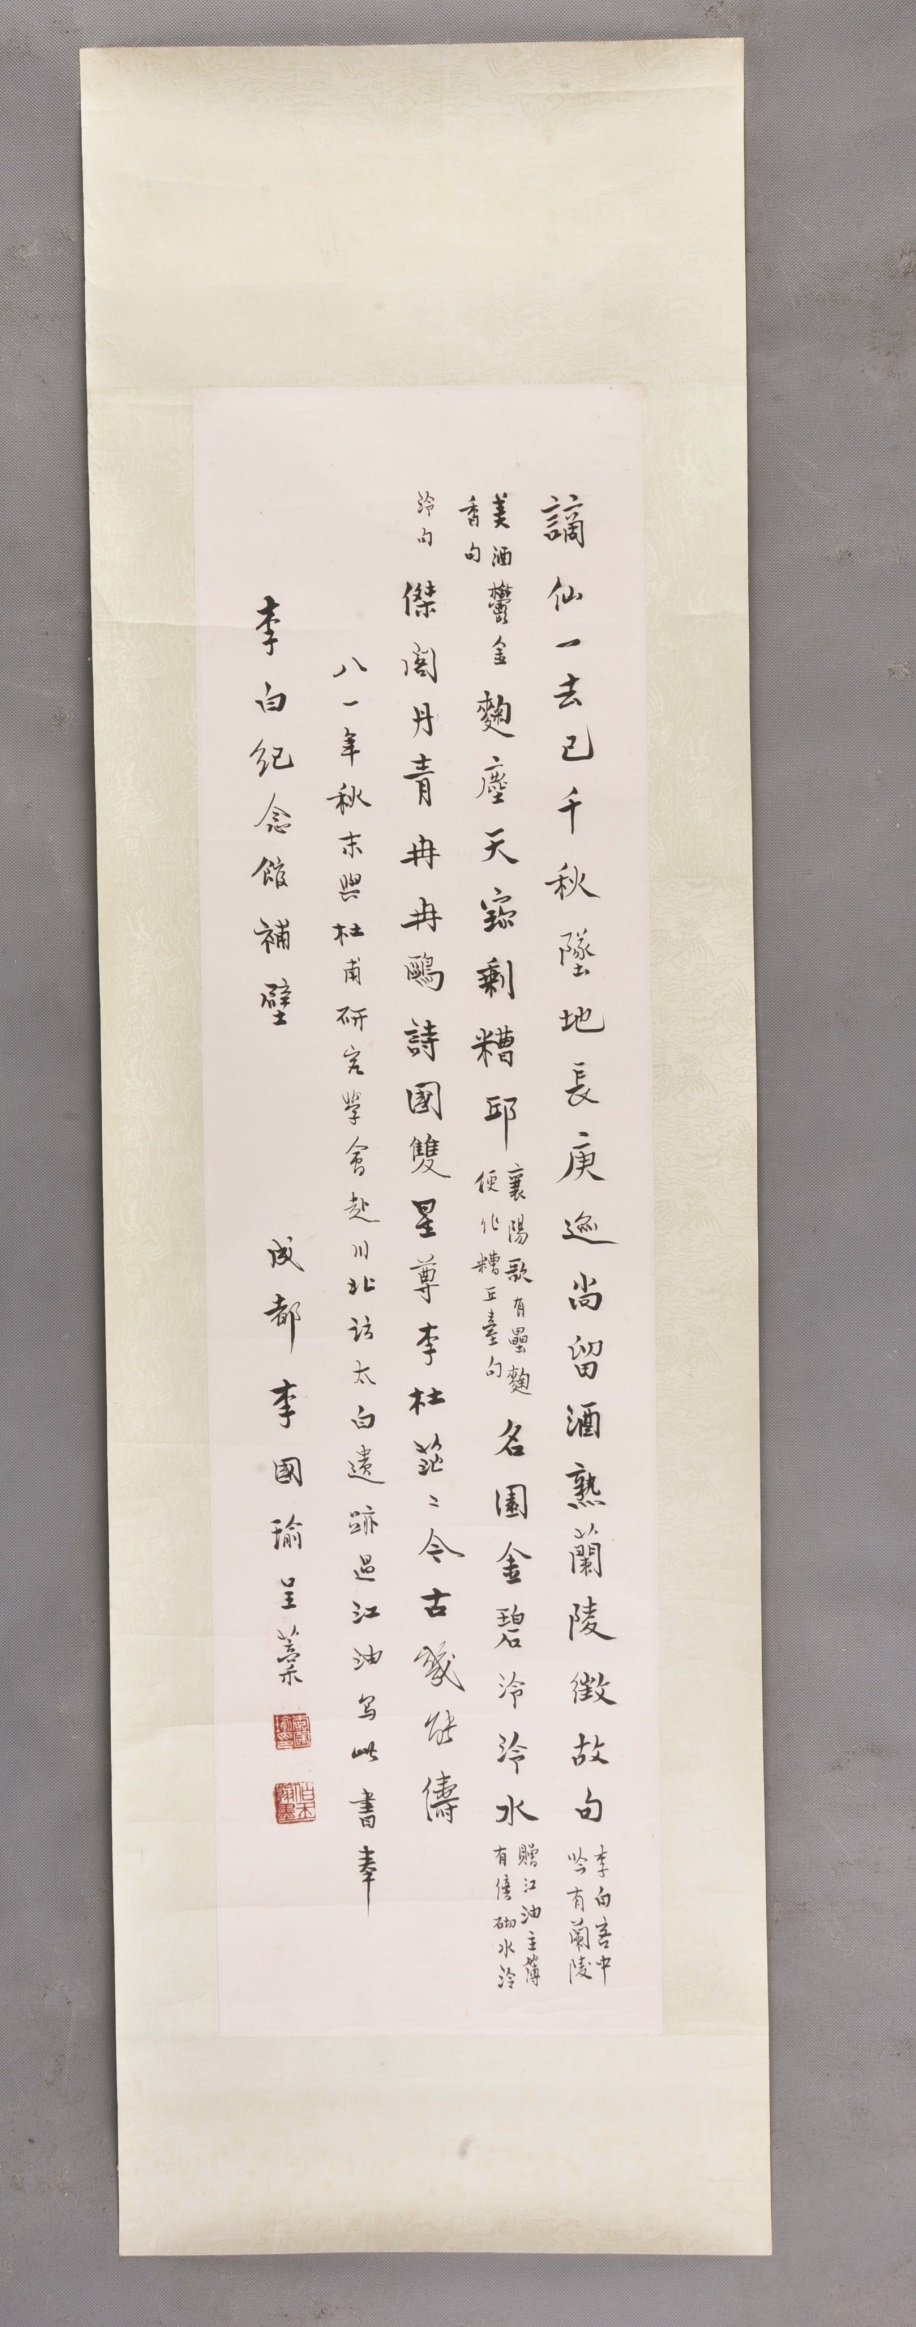 謫仙一去已千秋墜地長庚迹尚留酒熟蘭陵徵故句李白客中吟有蘭陵
美酒鬱金香句麴塵天寶剩糟邱襄陽歌有壘麴便作糟丘臺句名園金碧泠泠水贈江油主薄有傍砌水泠
泠句傑閣丹青冉冉鷗詩國雙星尊李杜茫〻今古幾能儔
八一年秋末與杜甫研究學會赴川北訪太白遺跡過江油写此書奉
李白纪念館補壁
成都李國瑜呈藁